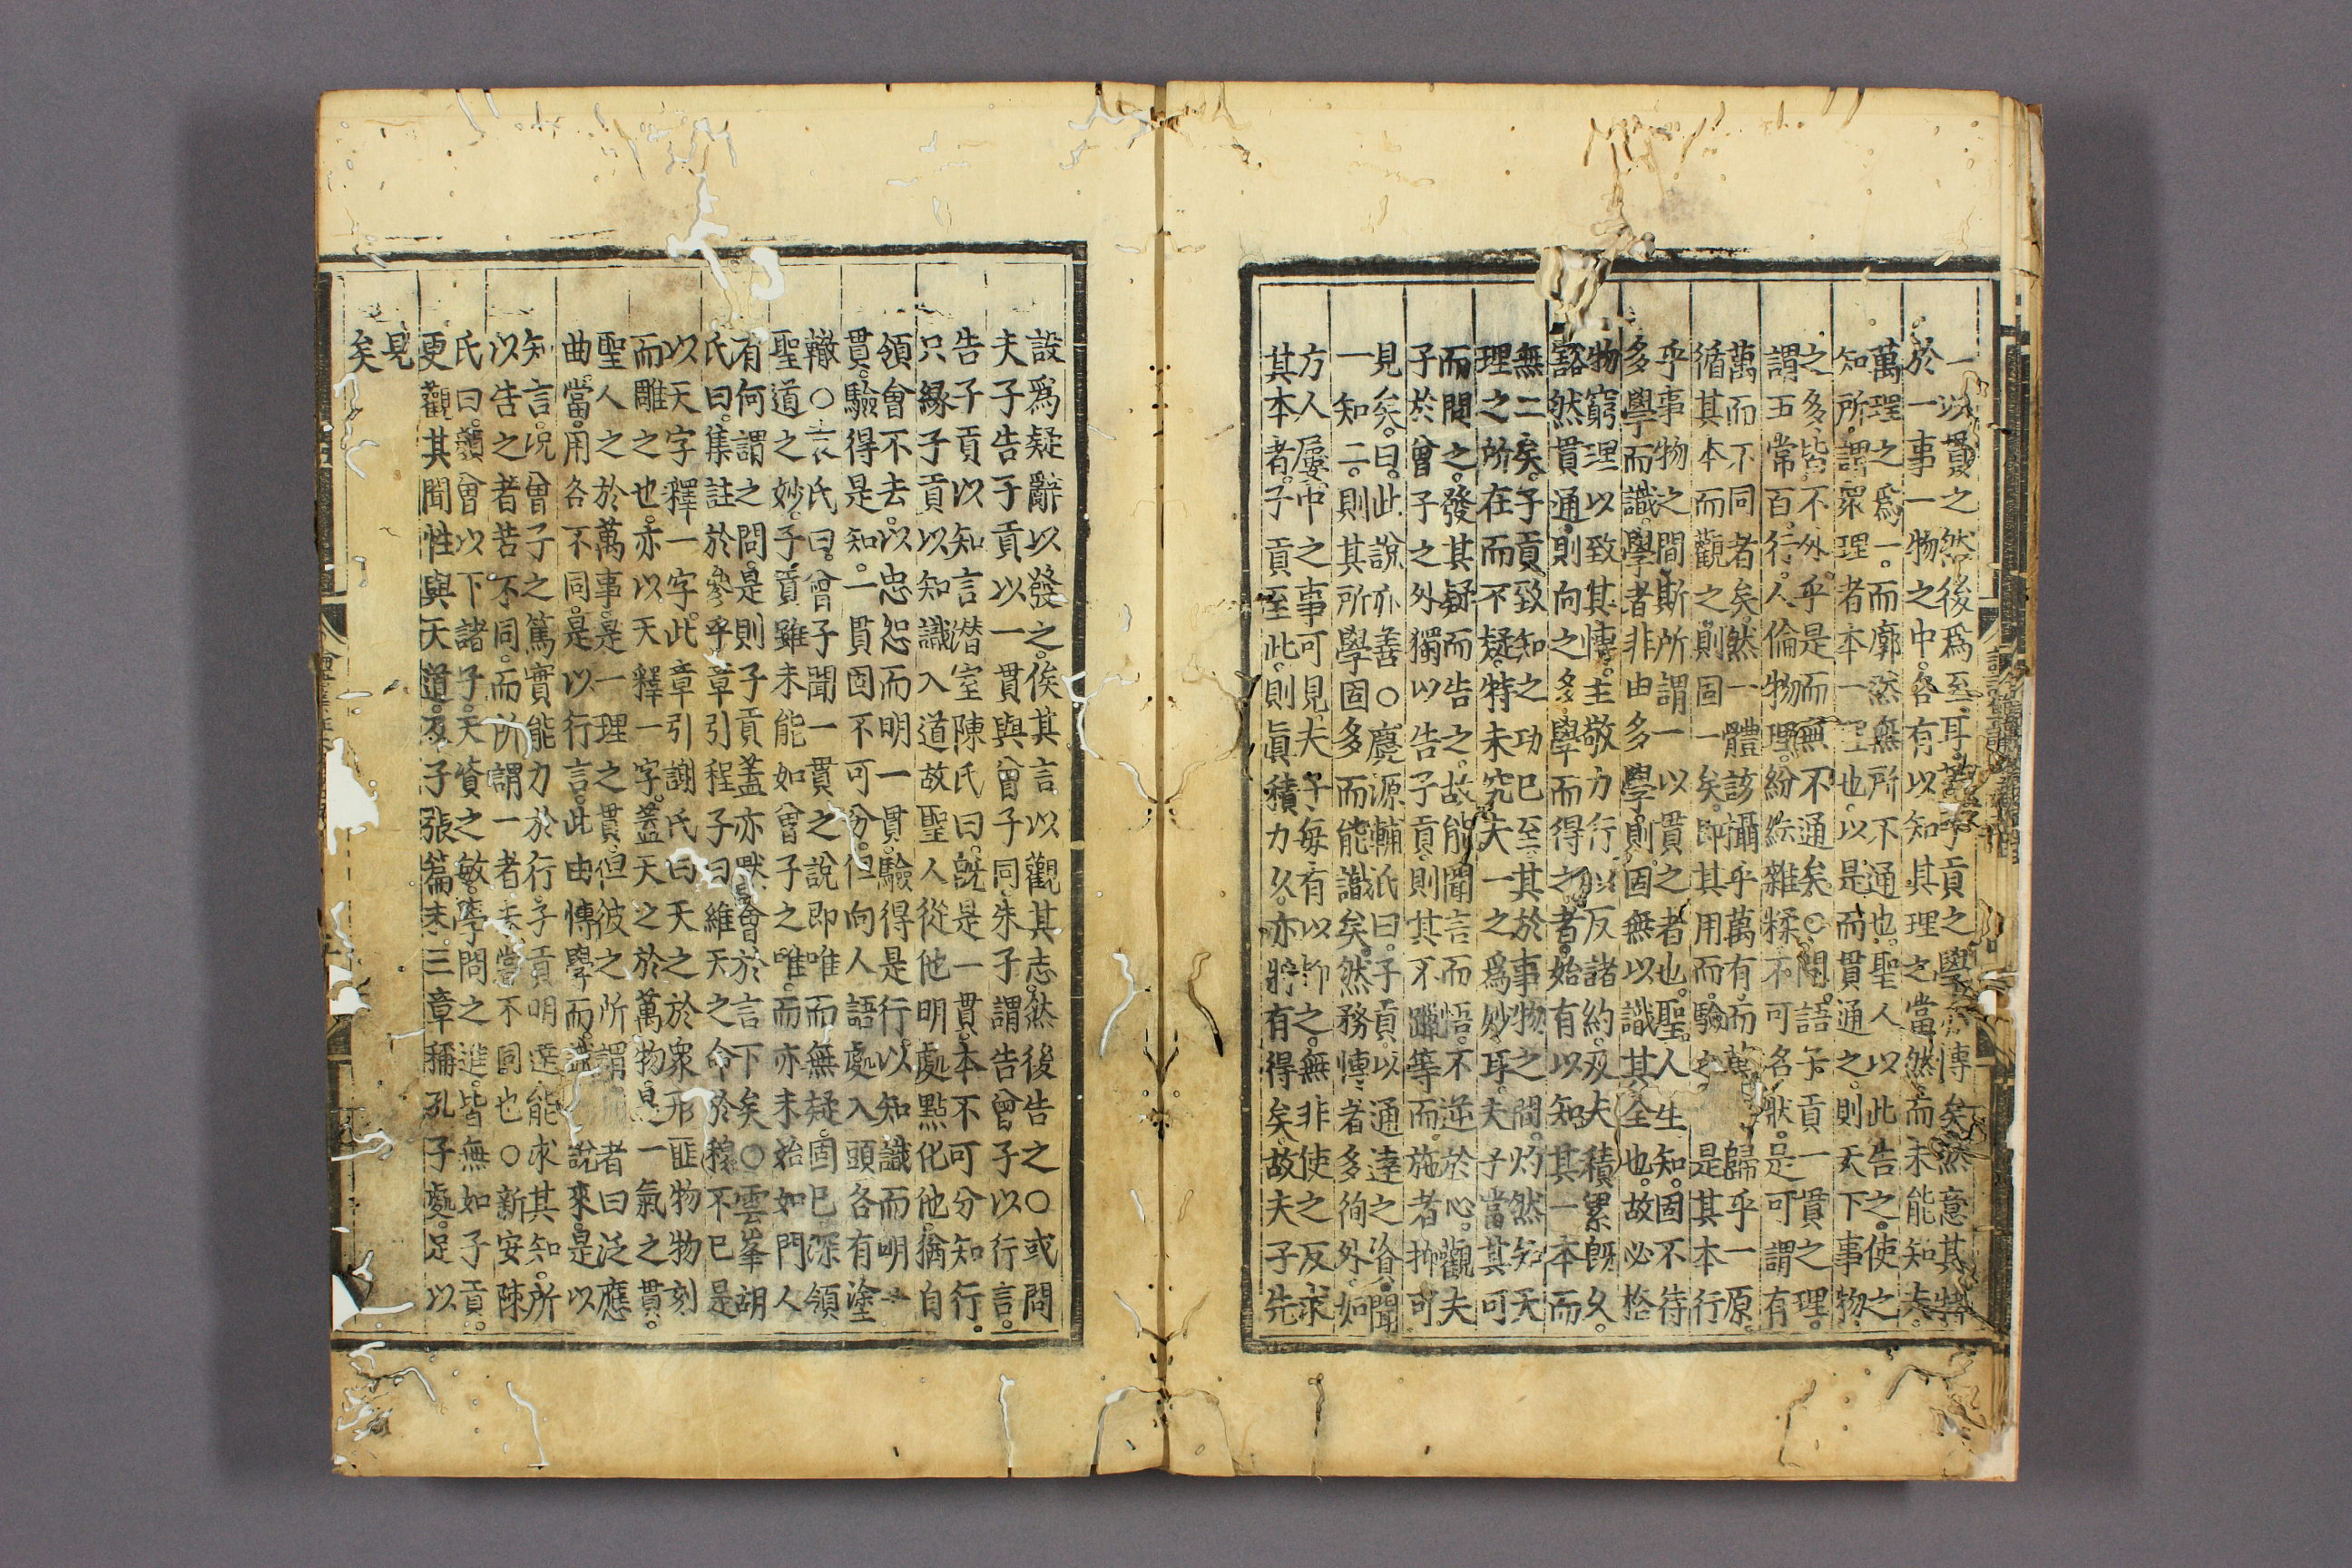 一以貫之然後爲至耳蓋子貢之學固愽矣然意其特
於一事一物之中各有以知其理之當然而未能知夫
萬理之爲一而廓然無所不通也聖人以此告之使之
知所謂衆理者本一理也以是而貫通之則天下事物
之多皆不外乎是而無不通矣○問語子貢一貫之理
謂五常百行人倫物理紛紜雜糅不可名狀是可謂有
萬而不同者矣然一體該攝乎萬有而萬 歸乎一原
循其本而觀之則固一矣即其用而驗 是其本行
乎事物之間斯所謂一以貫之者也聖人生知固不待
多學而識學者非由多學則固無以識其全也故必格
物窮理以致其愽主敬力行以反諸約及夫積累旣久
豁然貫通則向之多學而得之者始有以知其一本而
無二矣子貢致知之功已至其於事物之間灼然知天
理之所在而不疑特未究夫一之爲妙耳夫子當其可
而問之發其疑而告之故能聞言而悟不逆於心觀夫
子於曾子之外獨以告子貢則其不躐等而施者抑可
見矣曰此說亦善○慶源輔氏曰子貢以通達之資聞
一知二則其所學固多而能識矣然務愽者多徇外如
方人屢中之事可見夫子每有以抑之無非使之反求
其本者子貢至此則眞積力久亦將有得矣故夫子先
設爲疑辭以發之俟其言以觀其志然後告之○或問
夫子告子貢以一貫與曾子同朱子謂告曾子以行言
告子貢以知言潜室陳氏曰旣是一貫本不可分知行
只緣子貢以知識入道故聖人從他明處點化他猶自
領會不去以忠恕而明一貫驗得是行以知識而明一
貫驗得是知一貫固不可分但向人語處入頭各有塗
轍○袁氏曰曾子聞一貫之說即唯而無疑固已深領
聖道之妙子貢雖未能如曾子之唯而亦未始如門人
有何謂之問是則子貢蓋亦默會於言下矣○雲峯胡
氏曰集註於參乎章引程子曰維天之命於穆不已是
以天字釋一字此章引謝氏曰天之於衆形匪物物刻
而雕之也亦以天釋一字蓋天之於萬物是一氣之貫
聖人之於萬事是一理之貫但彼之所謂 者曰泛應
曲當用各不同是以行言此由愽學而識 說來是以
知言况曾子之篤實能力於行子貢明達能求其知所
以告之者若不同而所謂一者未嘗不同也○新安陳
氏曰顏曾以下諸子天資之敏學問之進皆無如子貢
更觀其聞性與天道及子張篇末三章稱孔子處足以
見
矣